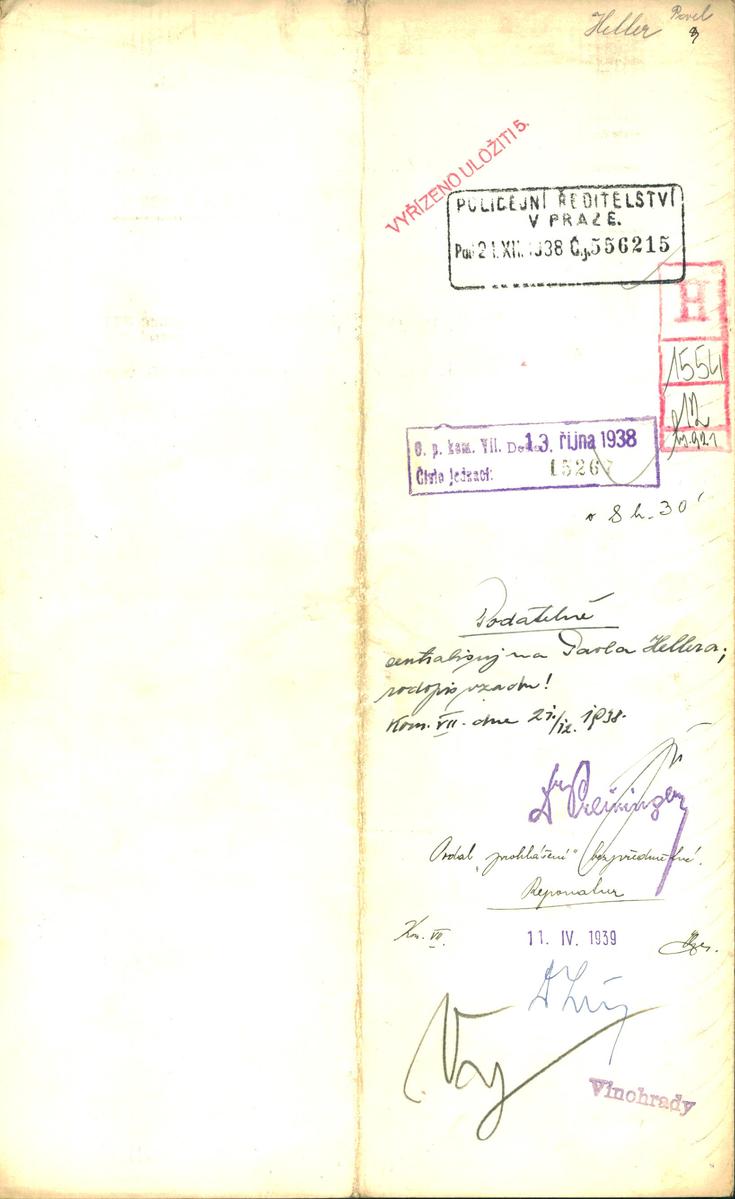 Heller Pavel
VYŘÍZENO ULOŽITI 5.
POLICEJNÍ ŘEDITELSTVÍ
V PRAZE.
21. XII. 1938 Čj. 556215
H
1554
12
O. p. kom. VII. 13. října 1938
Číslo jednací: 15267
8 h. 30'
Podatelně
na Pavla Hellera;
rodopis vzadu!
Kom. VII. dne 21./12. 1938.
Podal „prohlášení“ bezpředmětné.
Reponatur
Kom. VII. 11. IV. 1939
Vinohrady